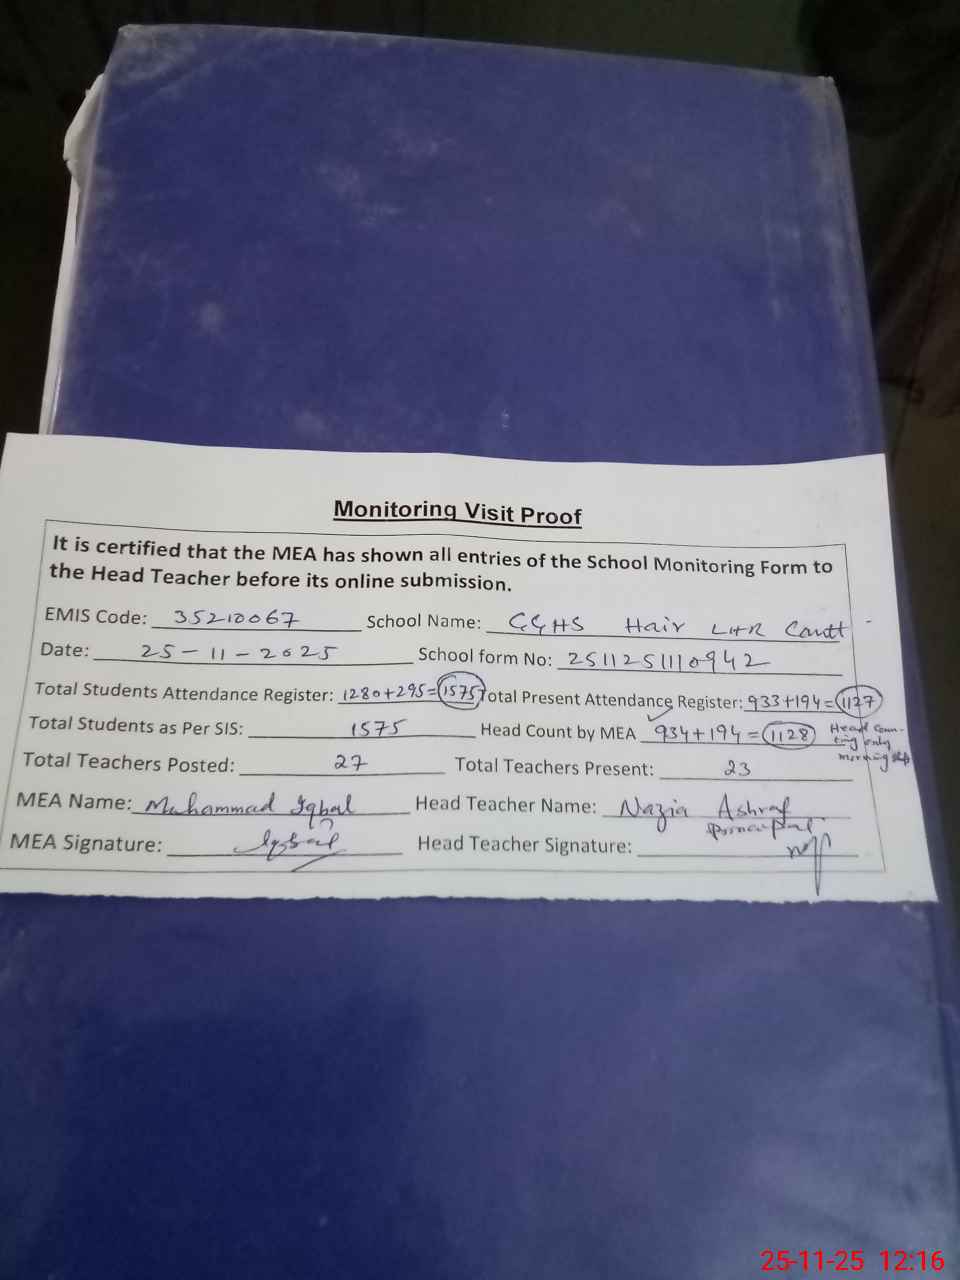 Monitoring Visit Proof
It is certified that the MEA has shown all entries of the School Monitoring Form to
the Head Teacher before its online submission.
EMIS Code: 35210067 School Name: GGHS Hair LHR Cantt
Date: 25-11-2025 School form No: 2511251110942
Total Students Attendance Register: 1280+295=1575 Total Present Attendance Register: 933+194=1127
Total Students as Per SIS: 1575 Head Count by MEA 934+194=1128 Head Coun-
ting only
morning
Total Teachers Posted: 27 Total Teachers Present: 23
MEA Name: Muhammad Iqbal Head Teacher Name: Nazia Ashraf
Principal
MEA Signature: Iqbal Head Teacher Signature:
25-11-25 12:16